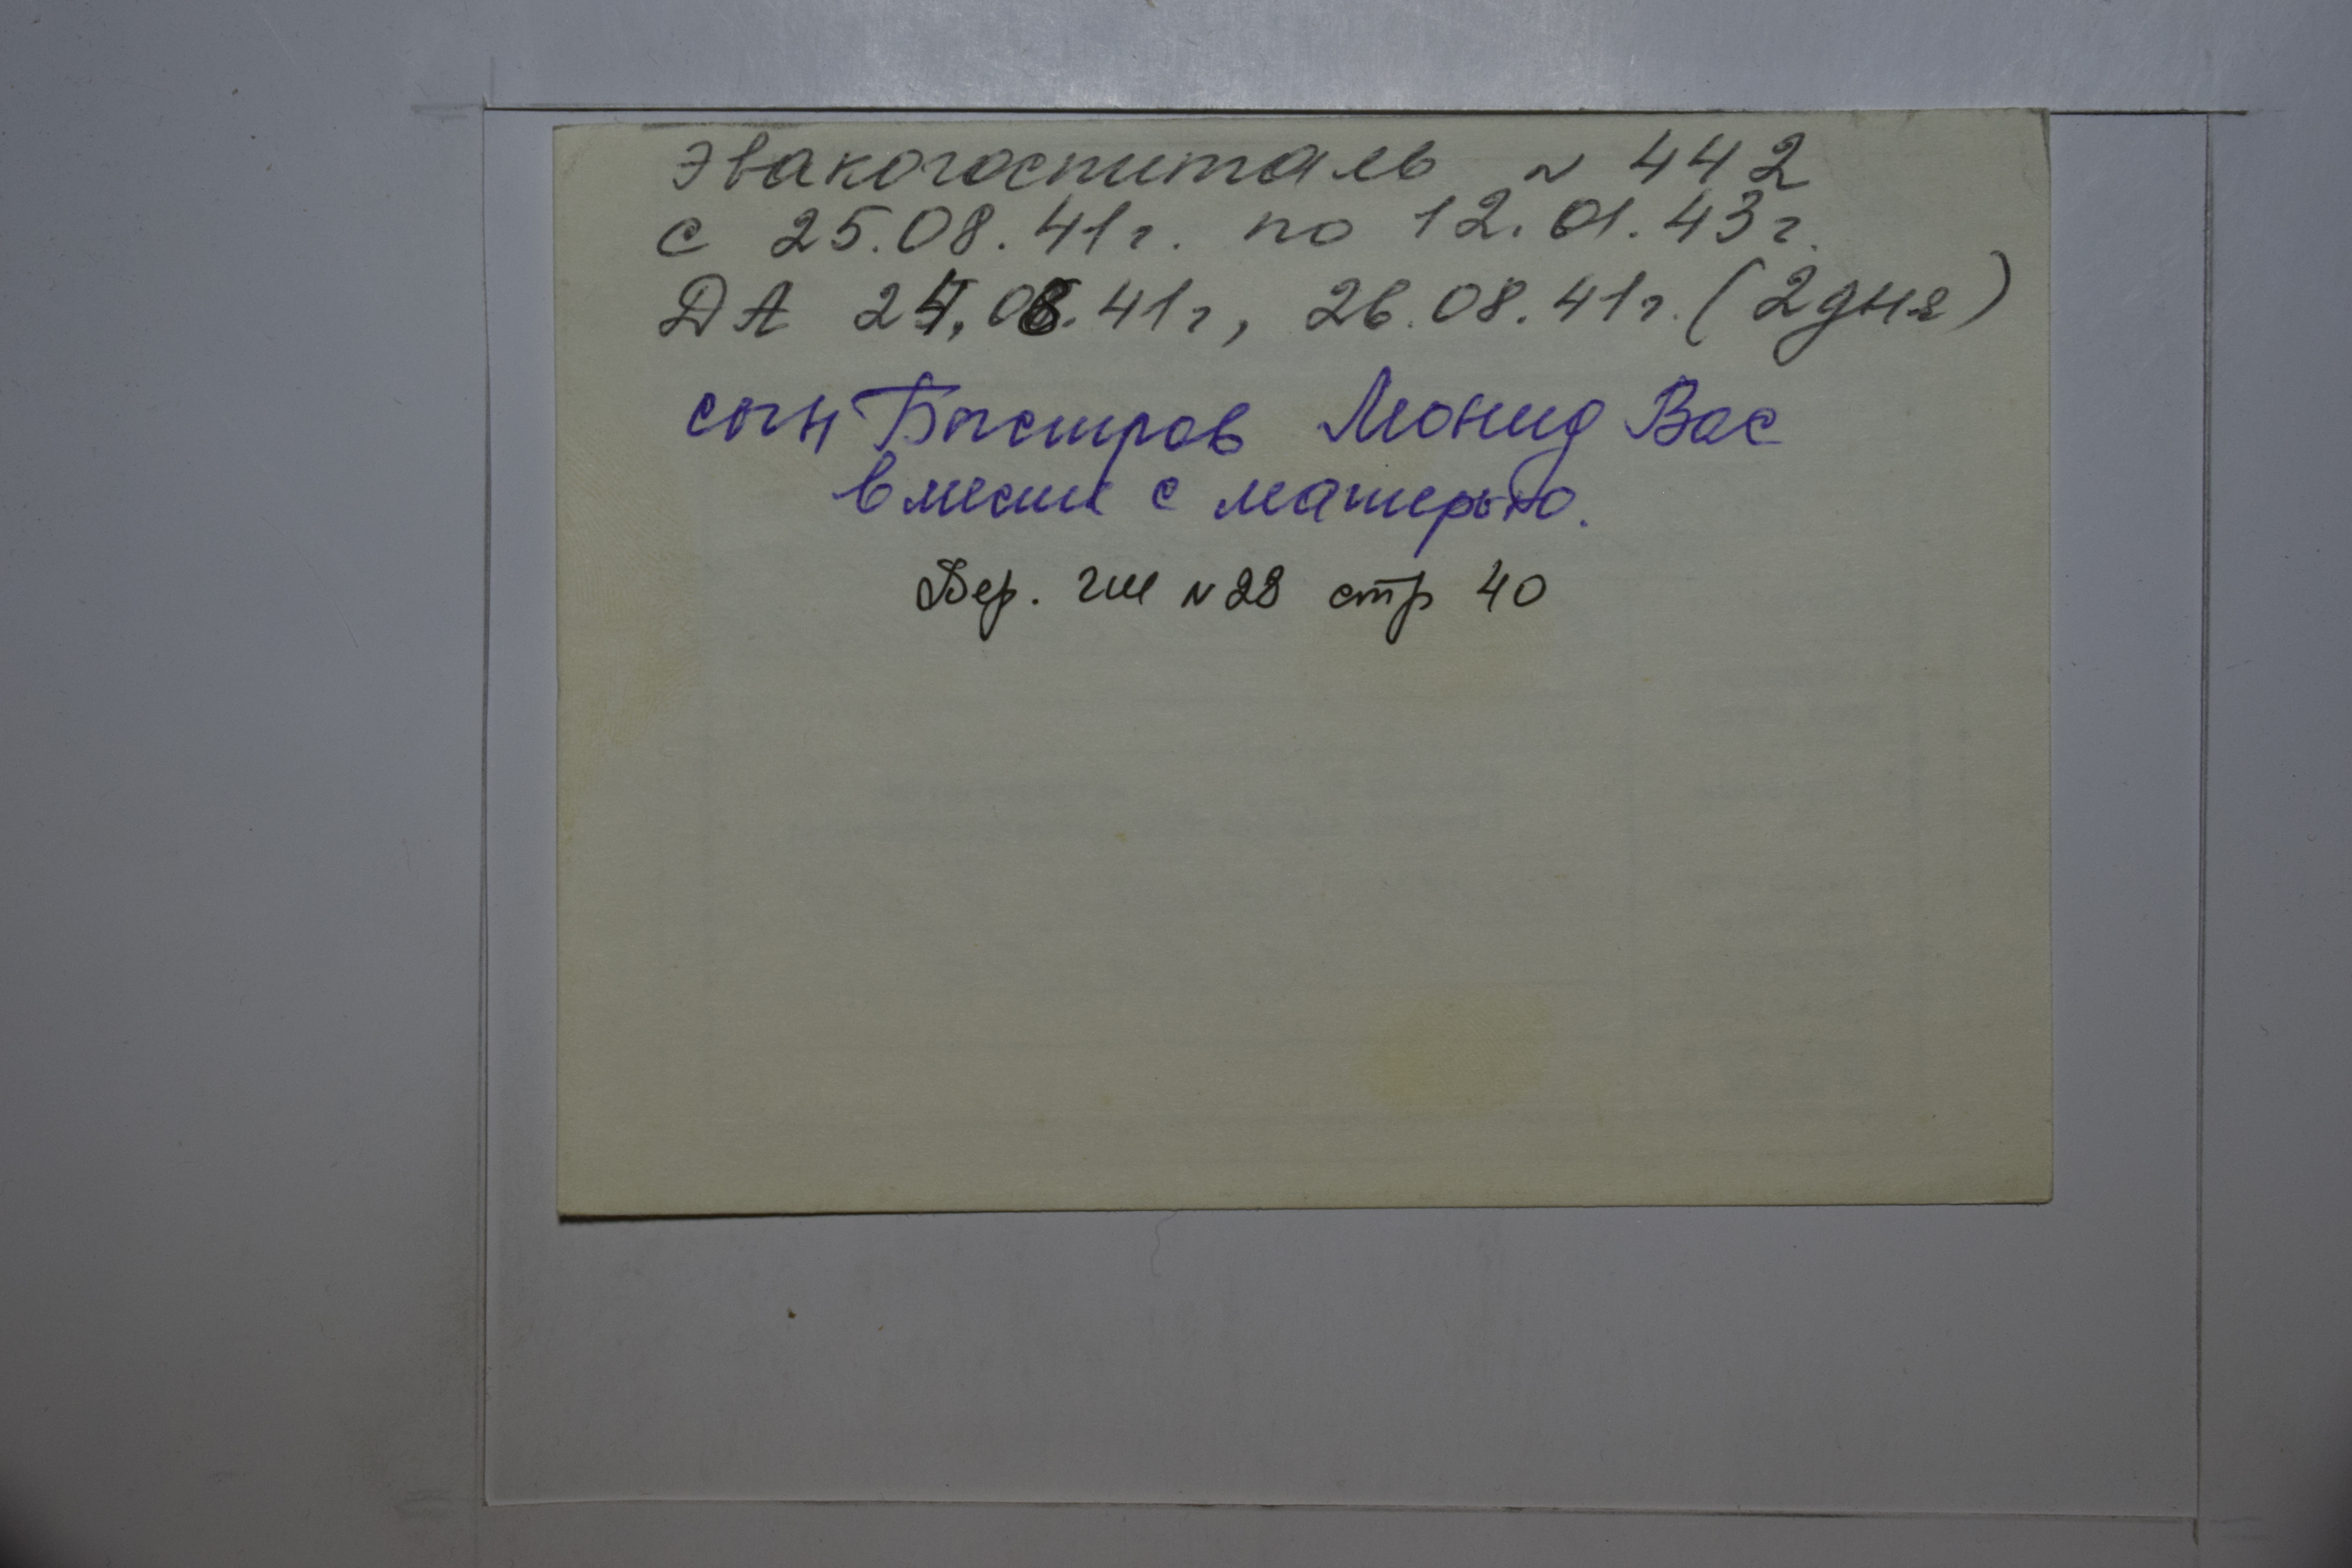 Эвакогоспиталь N 442
с 25.08.41г. по 12.01.43г.
ДА 24.08.41г, 26.08.41г. (2 дня)
сын Быстров Леонид Вас
вместе с матерью.
гш N 28 стр 40